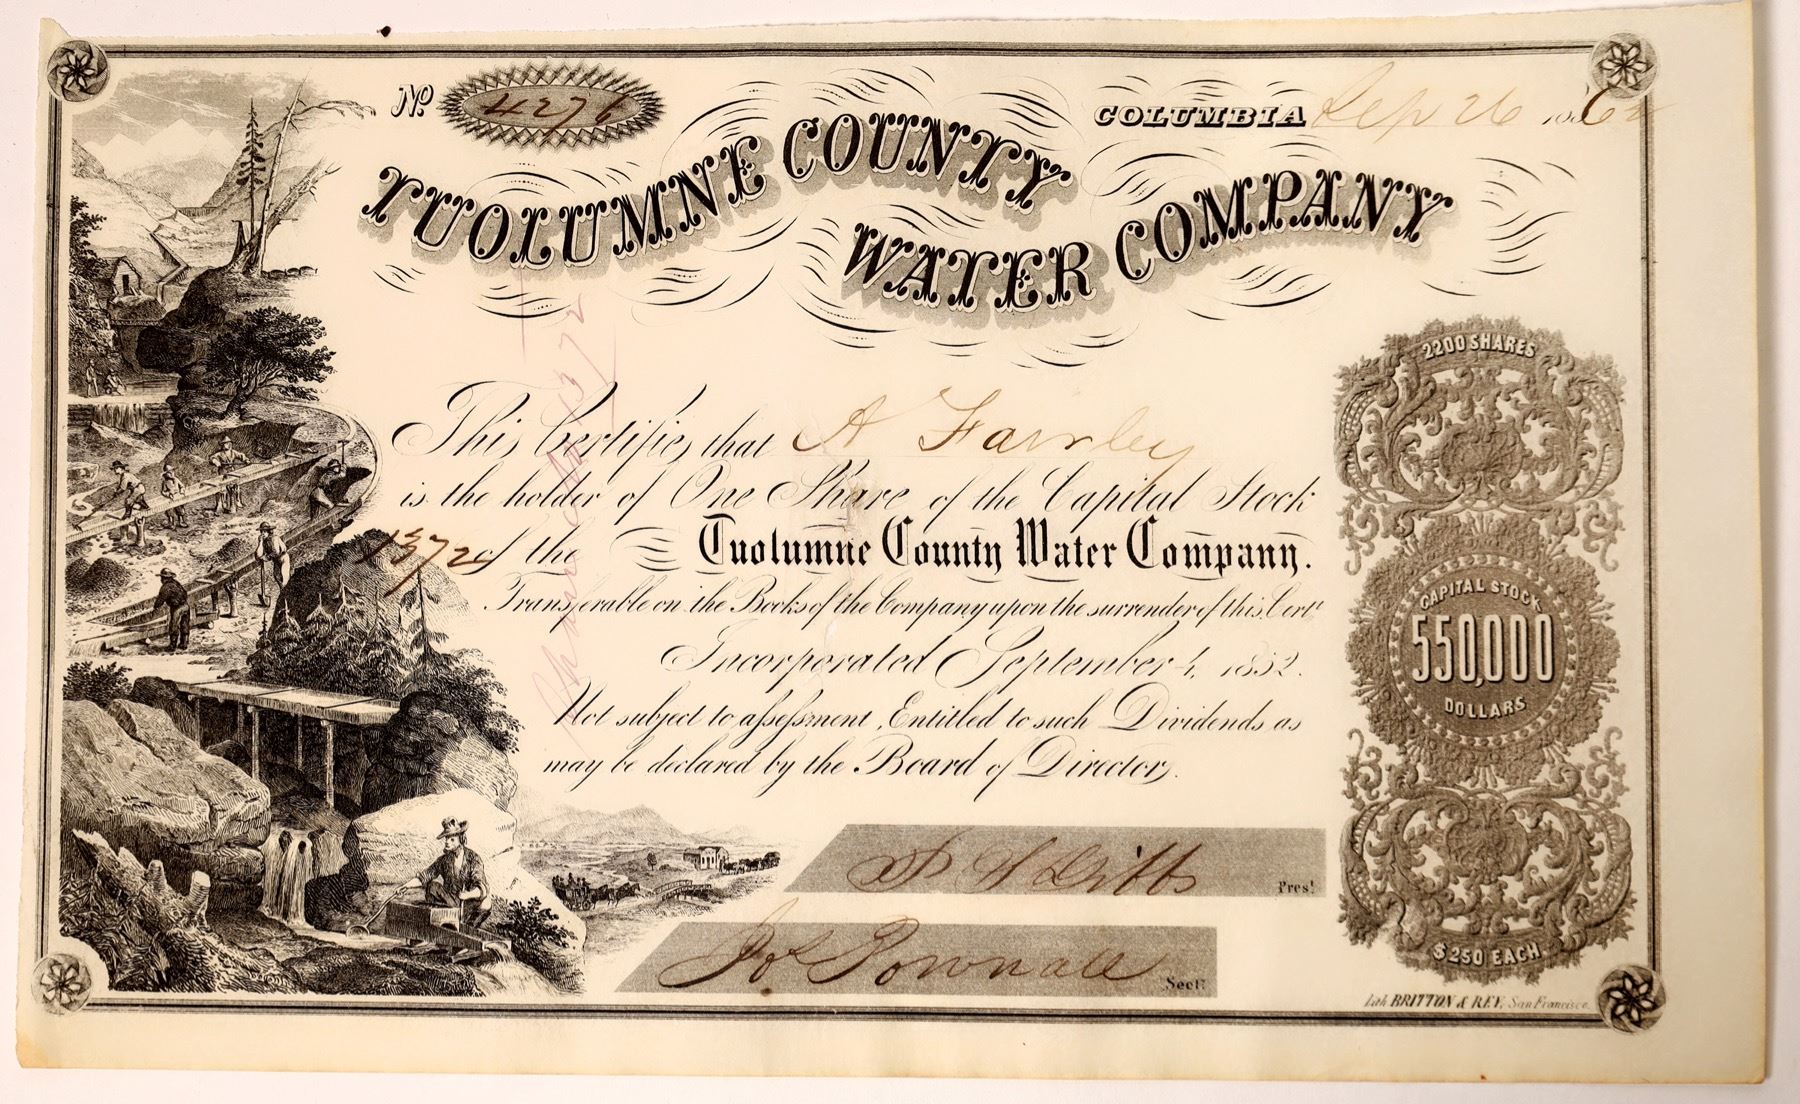 No 4276
COLUMBIA Sep 26 186
TUOLUMNE COUNTY
WATER COMPANY
This Certifies that A Fairley
is the holder of One Share of the Capital Stock
1372 of the Tuolumne County Water Company.
Transferable on the Books of the Company upon the surrender of this Cert
Incorporated September 4, 1852.
Not subject to assessment, Entitled to such Dividends as
may be declared by the Board of Directors.
2200 SHARES
CAPITAL STOCK
550,000
DOLLARS
$250 EACH
Dibbs Prest
Jos Pownall Sect:
Lith BRITTON & REY, San Francisco.